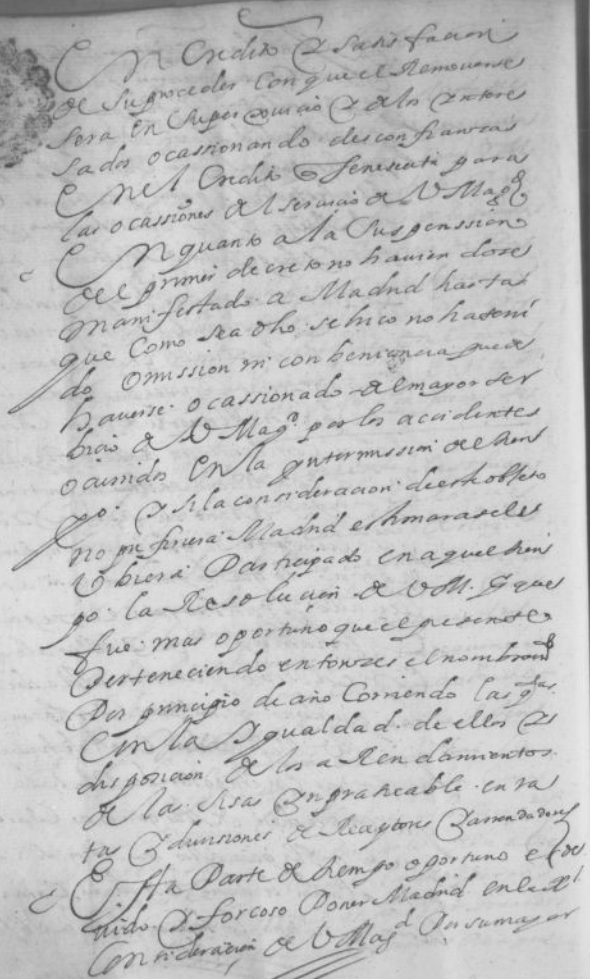 En Credito y satisfacion
de su proceder con que el Removerse
sera en su perxuicio y de los ynteres
sados ocassionando desconfianzas
En el Credito para
las ocassiones del servicio de V Magd
En quanto a la suspenssion
del primer decreto no haviendose
manifestado a Madrid hasta
que como sea dho se hico no ha teni
do omission ni combeniencia puede
haverse ocassionado al mayor ser
bicio de V Magd por los accidentes
ocurridos en la yntermission del tiem
po y si la consideracion de este obgeto
no pre firiera Madrid estimara se le
Vbiera Participado en aquel tiem
po la Resolucion de V M. que
fue mas oportuno que el presente
Perteneciendo entonzes el nombramto
Por principio de año Corriendo las qtas
Con la Ygualdad de ellos y
disposicion de los aRendamientos
de las sisas ynpraticable en ra
tas y diuisiones de Receptores y arrendadores
Esta Parte de tiempo oportuno
y forcoso Poner Madrid en la
Consideracion de V Magd Por su mayor